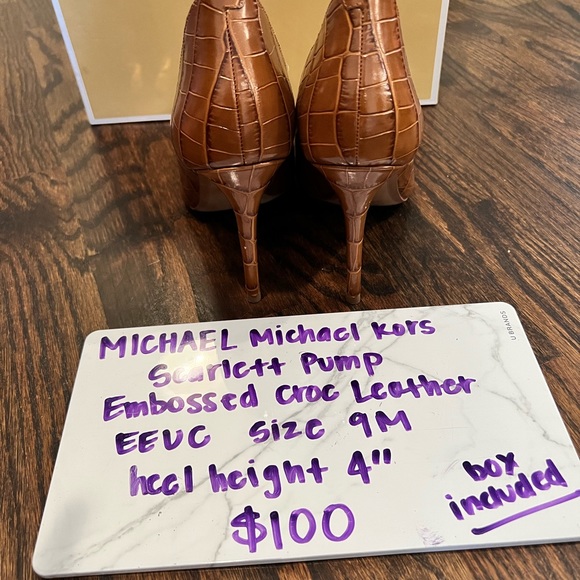 U BRANDS
MICHAEL Michael Kors
Scarlett Pump
Embossed Croc Leather
EEUC Size 9M
heel height 4"
$100
box
included